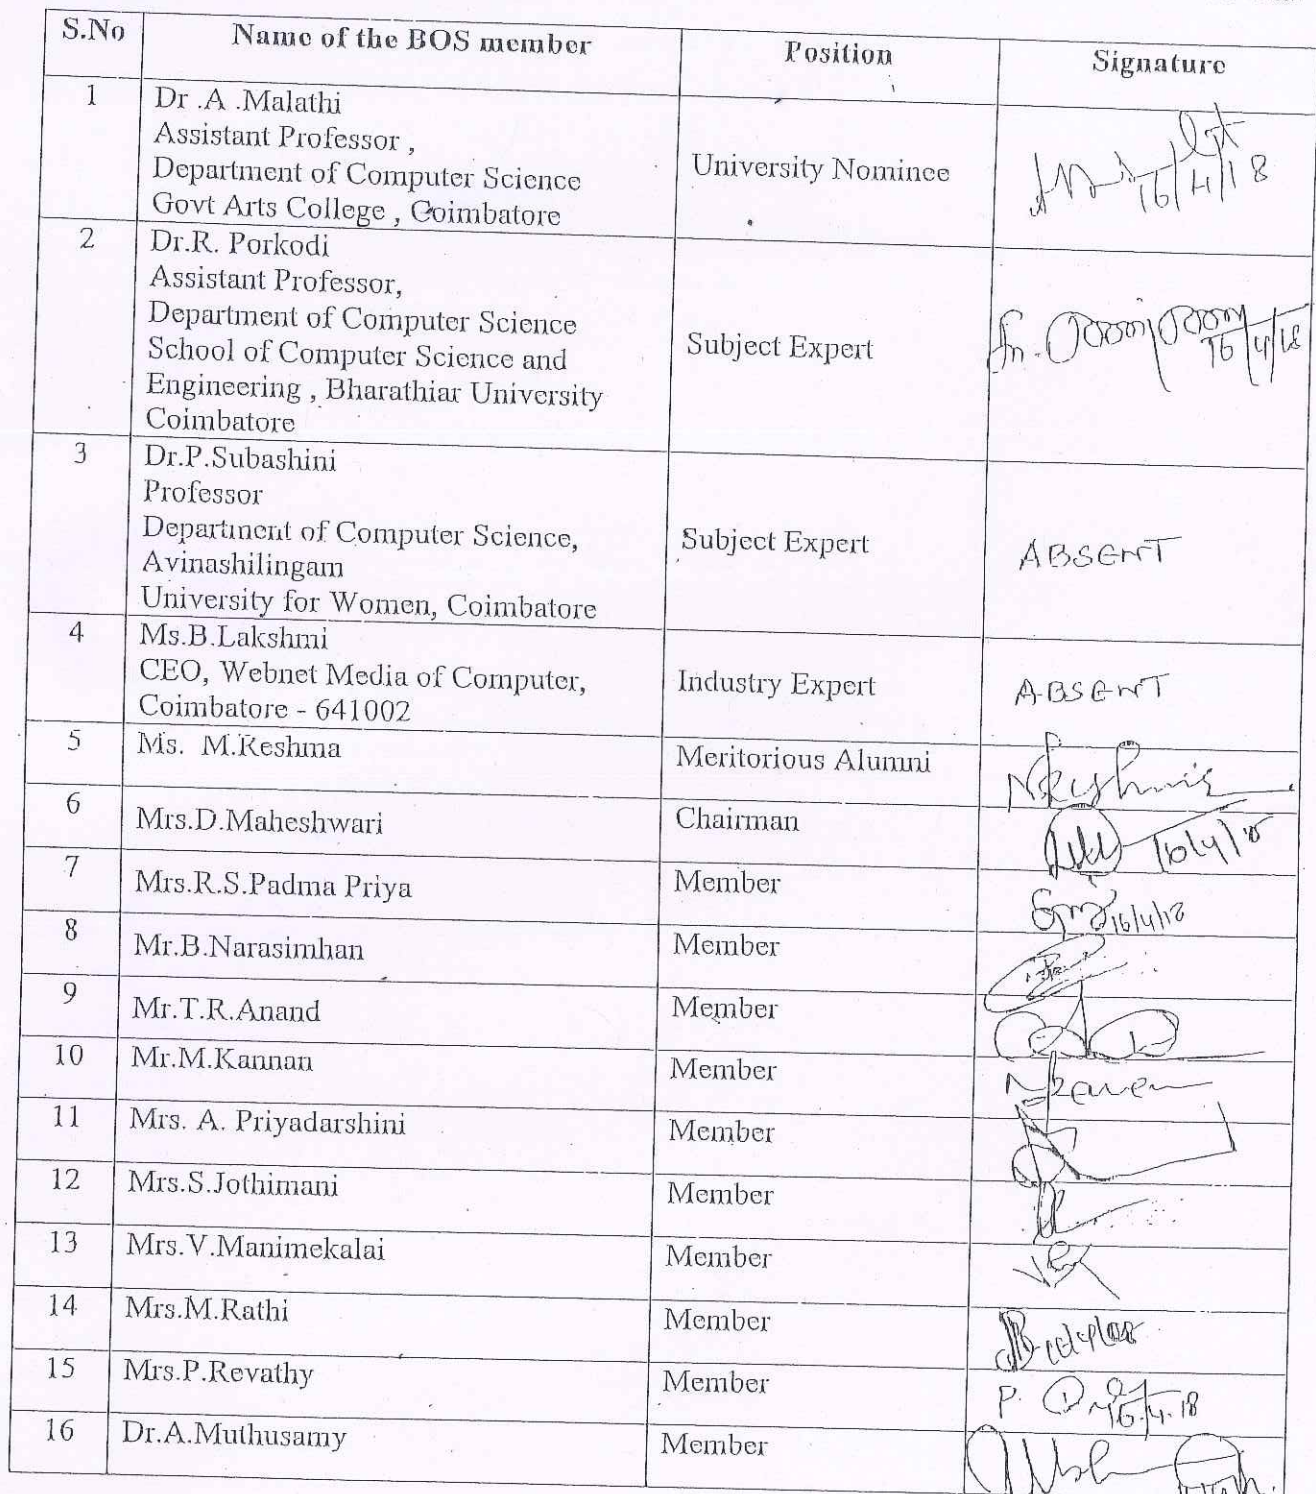 S.No Name of the BOS member Position Signature
1 Dr .A .Malathi
Assistant Professor ,
Department of Computer Science
Govt Arts College , Coimbatore
University Nominee
16/4/18
2 Dr.R. Porkodi
Assistant Professor,
Department of Computer Science
School of Computer Science and
Engineering , Bharathiar University
Coimbatore
Subject Expert
16/4/18
3 Dr.P.Subashini
Professor
Department of Computer Science,
Avinashilingam
University for Women, Coimbatore
Subject Expert
ABSENT
4 Ms.B.Lakshmi
CEO, Webnet Media of Computer,
Coimbatore - 641002
Industry Expert
ABSENT
5 Ms. M.Reshma Meritorious Alumni
6 Mrs.D.Maheshwari Chairman
7 Mrs.R.S.Padma Priya Member 16/4/18
8 Mr.B.Narasimhan Member
9 Mr.T.R.Anand Member
10 Mr.M.Kannan Member
11 Mrs. A. Priyadarshini Member
12 Mrs.S.Jothimani Member
13 Mrs.V.Manimekalai Member
14 Mrs.M.Rathi Member
15 Mrs.P.Revathy Member P. 16.4.18
16 Dr.A.Muthusamy Member